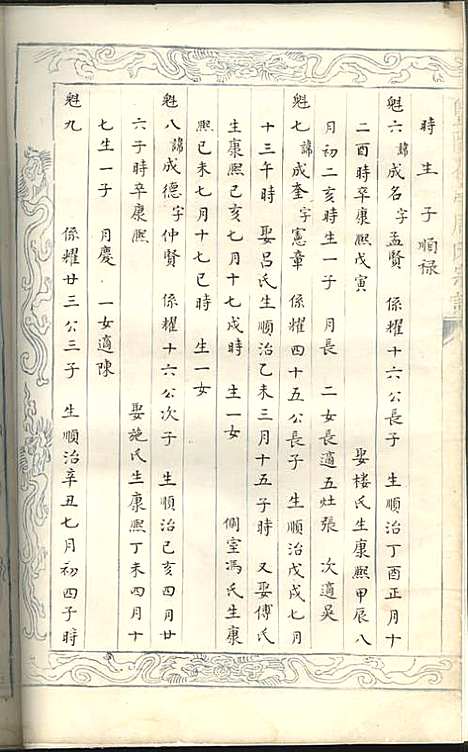 時生 子順禄
魁六 諱成名字孟賢 係耀十六公長子 生順治丁酉正月十
二酉時卒康熙戊寅 娶楼氏生康熙甲辰八
月初二亥時生一子 月長 二女長適五灶張 次適吳
魁七 諱成奎字憲章 係耀四十五公長子 生順治戊戌七月
十三午時 娶吕氏生順治乙未三月十五子時 又娶傅氏
生康熙己亥七月十七戌時 生一女 側室馮氏生康
熙己未七月十七巳時 生一女
魁八 諱成德字仲賢 係耀十六公次子 生順治己亥四月廿
六子時卒康熙 娶施氏生康熙丁未四月十
七生一子 月慶 一女適陳
魁九 係耀廿三公三子 生順治辛丑七月初四子時